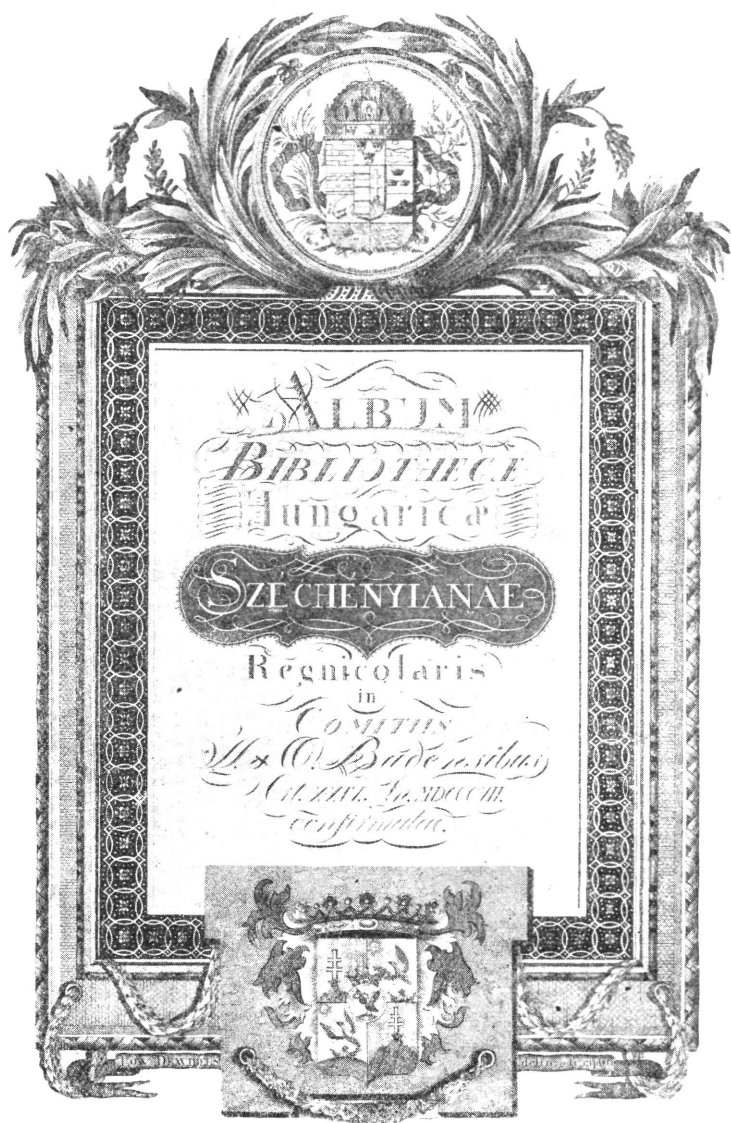 ALBUM
BIBLIOTHECÆ
Hungaricæ
SZÉCHÉNYIANAE
Regnicolaris
in
COMITIIS
Budensibus
MDCCCVIII.
confirmatae.